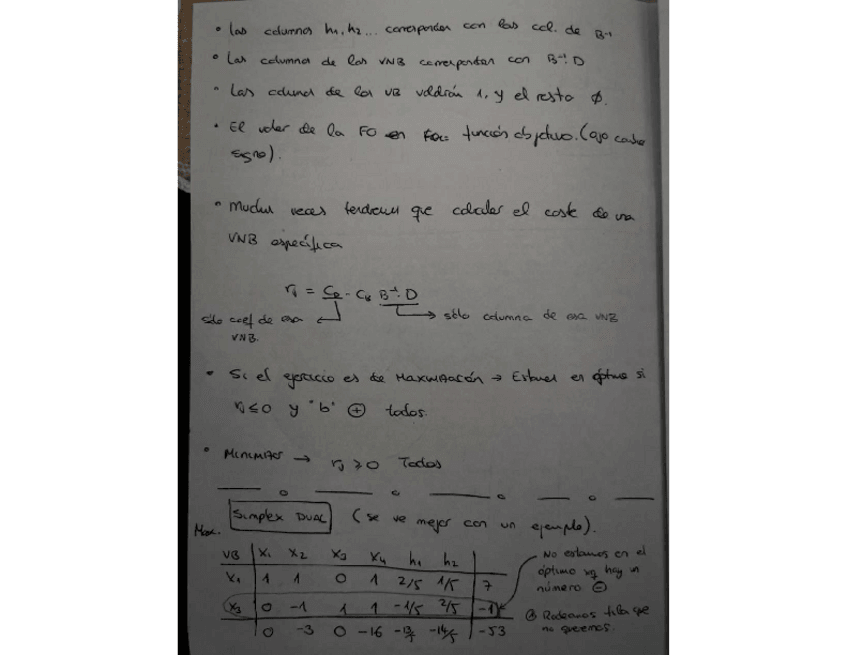 • Las columnas h1, h2... corresponden con las col. de B-1
• Las columnas de las VNB corresponden con B-1.D
• Las columnas de las VB valdrán 1, y el resto ∅.
• El valor de la FO en función objetivo. (ojo cambio
signo).
• Muchas veces tendremos que calcular el coste de una
VNB específica
rj = CD - CB B-1.D
sólo coef de esa
VNB.
sólo columna de esa VNB
• Si el ejercicio es de Maximización → Estamos en óptimo si
rj ≤ 0 y "b" ⊕ todos.
• Minimizar → rj ≥ 0 Todos
Simplex DUAL (se ve mejor con un ejemplo).
Max.
VB X1 X2 X3 X4 h1 h2
X1 1 1 0 1 2/5 1/5 7
X3 0 -1 1 1 -1/5 2/5 -1
0 -3 0 -16 -53
No estamos en el
óptimo xq hay un
número ⊖
Rodeamos fila que
no queremos.